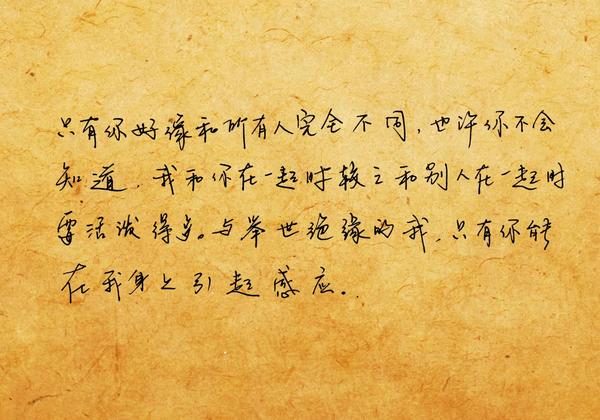 只有你好像和所有人完全不同，也许你不会
知道，我和你在一起时较之和别人在一起时
要活泼得多。与举世绝缘的我，只有你能
在我身上引起感应。